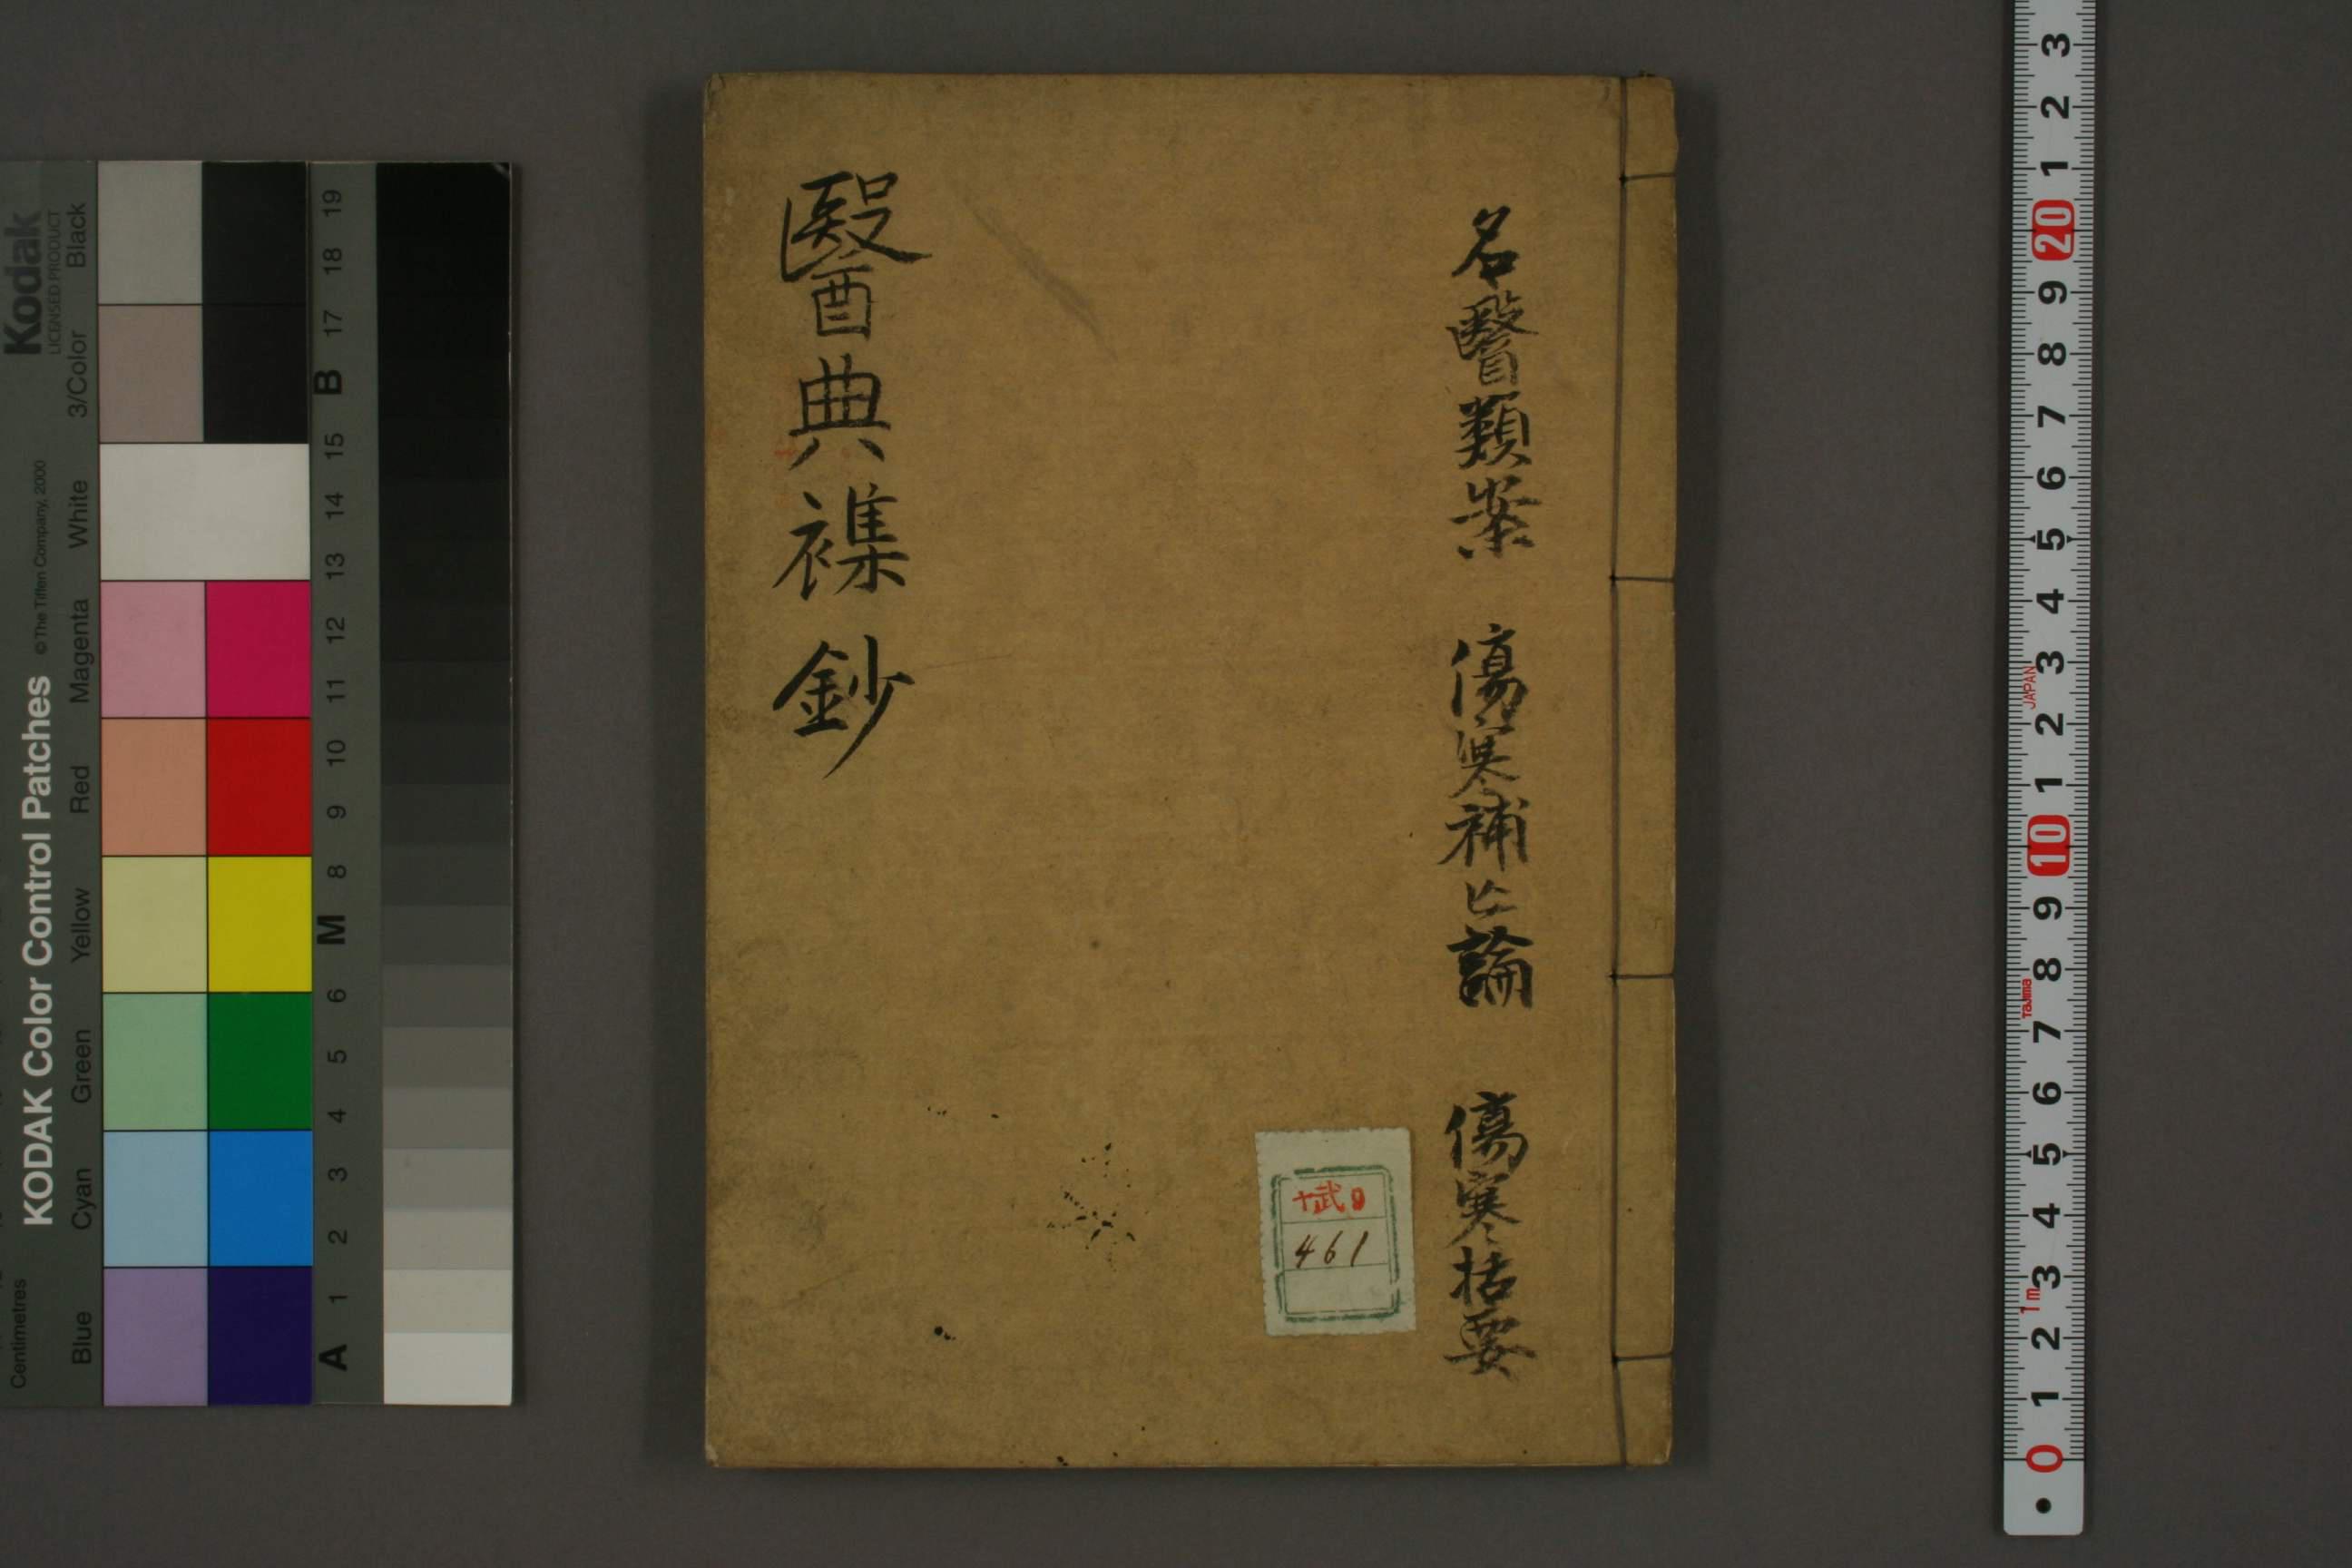 名醫類案 傷寒補亡論 傷寒括要
醫典襍鈔
十武日
461
Kodak
LICENSED PRODUCT
KODAK Color Control Patches
© The Tiffen Company, 2000
Centimetres
Blue Cyan Green Yellow Red Magenta White 3/Color Black
A 1 2 3 4 5 6 M 8 9 10 11 12 13 14 15 B 17 18 19
3 2 1 20 9 8 7 6 5 4 3 2 1 10 9 8 7 6 5 4 3 2 1 0
JAPAN
Tajima
1m